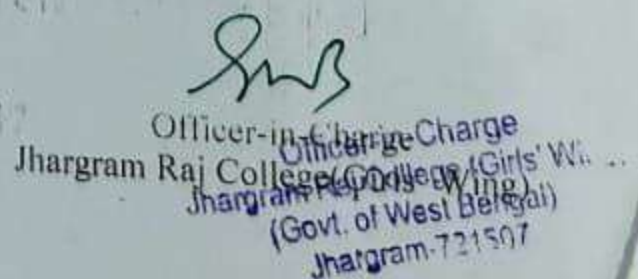 Officer-in-Charge
Jhargram Raj College (Girls' Wing)
Officer-in-Charge
Jhargram Raj College (Girls' Wi...
(Govt. of West Bengal)
Jhargram-721507